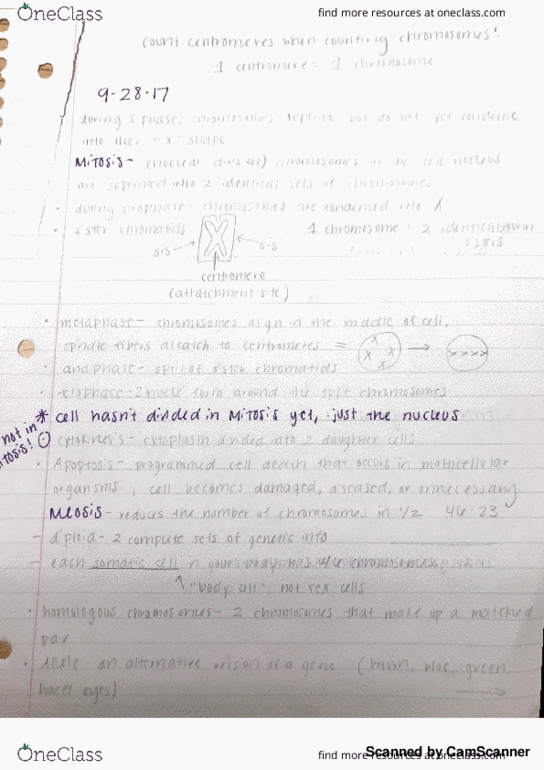 OneClass
find more resources at oneclass.com
count centromeres when counting chromosomes!
1 centromere = 1 chromosome
9-28-17
during S phase, chromosomes replicate but do not yet condense
into their "x" shape
Mitosis- (nuclear division) chromosomes in the cell nucleus
are separated into 2 identical sets of chromosomes
• during prophase- chromosomes are condensed into X
• sister chromatids
1 chromosome = 2 identical
sis
sis
centromere
(attatchment site)
• metaphase- chromosomes align in the middle of cell,
spindle fibers attatch to centromeres =
• anaphase- split of sister chromatids
• telophase- 2 nuclei form around the split chromosomes
* cell hasn't divided in Mitosis yet, just the nucleus
not in
tosis!
cytokinesis- cytoplasm divided into 2 daughter cells
• Apoptosis- programmed cell death that occurs in multicellular
organisms, cell becomes damaged, diseased, or unnecessary
Meosis- reduces the number of chromosomes in 1/2 46-23
- diploid- 2 compute sets of genetic info
- each somatic cell in your body has 46 chromosomes
"body cell" not sex cells
• homologous chromosomes- 2 chromosomes that make up a matched
pair
• Allele- an alternative version of a gene (brown, blue, green,
hazel eyes)
OneClass
find more resources at oneclass.com
Scanned by CamScanner